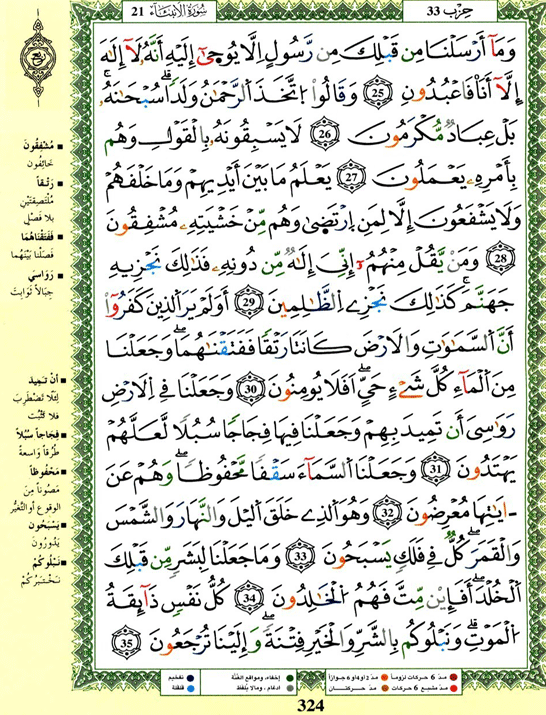 حِزْب 33
سُورَةُ الأَنبِيَاء 21
وَمَآ أَرْسَلْنَا مِن قَبْلِكَ مِن رَّسُولٍ اِلَّا يُوجَىٰٓ إِلَيْهِ أَنَّهُۥ لَآ إِلَٰهَ
إِلَّآ أَنَا فَاعْبُدُونِ 25 وَقَالُوا اُ۪تَّخَذَ اَ۬لرَّحْمَٰنُ وَلَدًاۗ سُبْحَٰنَهُۥۚ
بَلْ عِبَادٌ مُّكْرَمُونَ 26 لَا يَسْبِقُونَهُۥ بِالْقَوْلِ وَهُم
بِأَمْرِهِۦ يَعْمَلُونَ 27 يَعْلَمُ مَا بَيْنَ أَيْدِيهِمْ وَمَا خَلْفَهُمْ
وَلَا يَشْفَعُونَ إِلَّا لِمَنِ اِ۪رْتَضَىٰ وَهُم مِّنْ خَشْيَتِهِۦ مُشْفِقُونَ
28 وَمَنْ يَّقُلْ مِنْهُمُۥٓ إِنِّيَ إِلَٰهٌ مِّن دُونِهِۦ فَذَٰلِكَ نَجْزِيهِ
جَهَنَّمَۚ كَذَٰلِكَ نَجْزِے اِ۬لظَّٰلِمِينَ 29 أَوَلَمْ يَرَ اَ۬لذِينَ كَفَرُوٓا
أَنَّ اَ۬لسَّمَٰوَٰتِ وَالَارْضَ كَانَتَا رَتْقًا فَفَتَقْنَٰهُمَاۖ وَجَعَلْنَا
مِنَ اَ۬لْمَآءِ كُلَّ شَےْءٍ حَيٍّۖ اَفَلَا يُومِنُونَ 30 وَجَعَلْنَا فِے اِ۬لَارْضِ
رَوَٰسِيَ أَن تَمِيدَ بِهِمْ وَجَعَلْنَا فِيهَا فِجَاجًا سُبُلًا لَّعَلَّهُمْ
يَهْتَدُونَ 31 وَجَعَلْنَا اَ۬لسَّمَآءَ سَقْفًا مَّحْفُوظًاۖ وَهُمْ عَنَ
ـايَٰتِهَا مُعْرِضُونَ 32 وَهُوَ اَ۬لذِے خَلَقَ اَ۬ليْلَ وَالنَّهَارَ وَالشَّمْسَ
وَالْقَمَرَۖ كُلٌّ فِے فَلَكٍ يَسْبَحُونَ 33 وَمَا جَعَلْنَا لِبَشَرٍ مِّن قَبْلِكَ
اَ۬لْخُلْدَۖ أَفَإِيْن مِّتَّ فَهُمُ اُ۬لْخَٰلِدُونَ 34 كُلُّ نَفْسٍ ذَآئِقَةُ
اُ۬لْمَوْتِۗ وَنَبْلُوكُم بِالشَّرِّ وَالْخَيْرِ فِتْنَةًۖ وَإِلَيْنَا تُرْجَعُونَ 35
■ مُشْفِقُونَ
خَائِفُون
■ رَتْقاً
مُلْتَصِقَتَيْنِ
بِلا فَصْلٍ
■ فَفَتَقْنَاهُمَا
فَصَلْنَا بَيْنَهُما
■ رَوَاسِيَ
جِبَالاً ثَوَابِتَ
■ أَنْ تَمِيدَ
لِئَلَّا تَضْطَرِبَ
فلا تَثْبُت
■ فِجَاجاً سُبُلاً
طُرُقاً وَاسِعةً
■ مَحْفُوظاً
مَصُوناً مِنَ
الوقوعِ أوالتَّغَيُّر
■ يَسْبَحُون
يَدُورُون
■ نَبْلُوكُمْ
نَخْتَبِرُكُم
● مدّ 6 حركات لزوماً ● مدّ 2 أو 4 أو 6 جوازاً
● مدّ مشبع 6 حركات ● مدّ حركتان
● إخفاء، ومواقع الغُنَّة
● إدغام، ومالا يُلفَظ
● تفخيم
● قلقلة
324